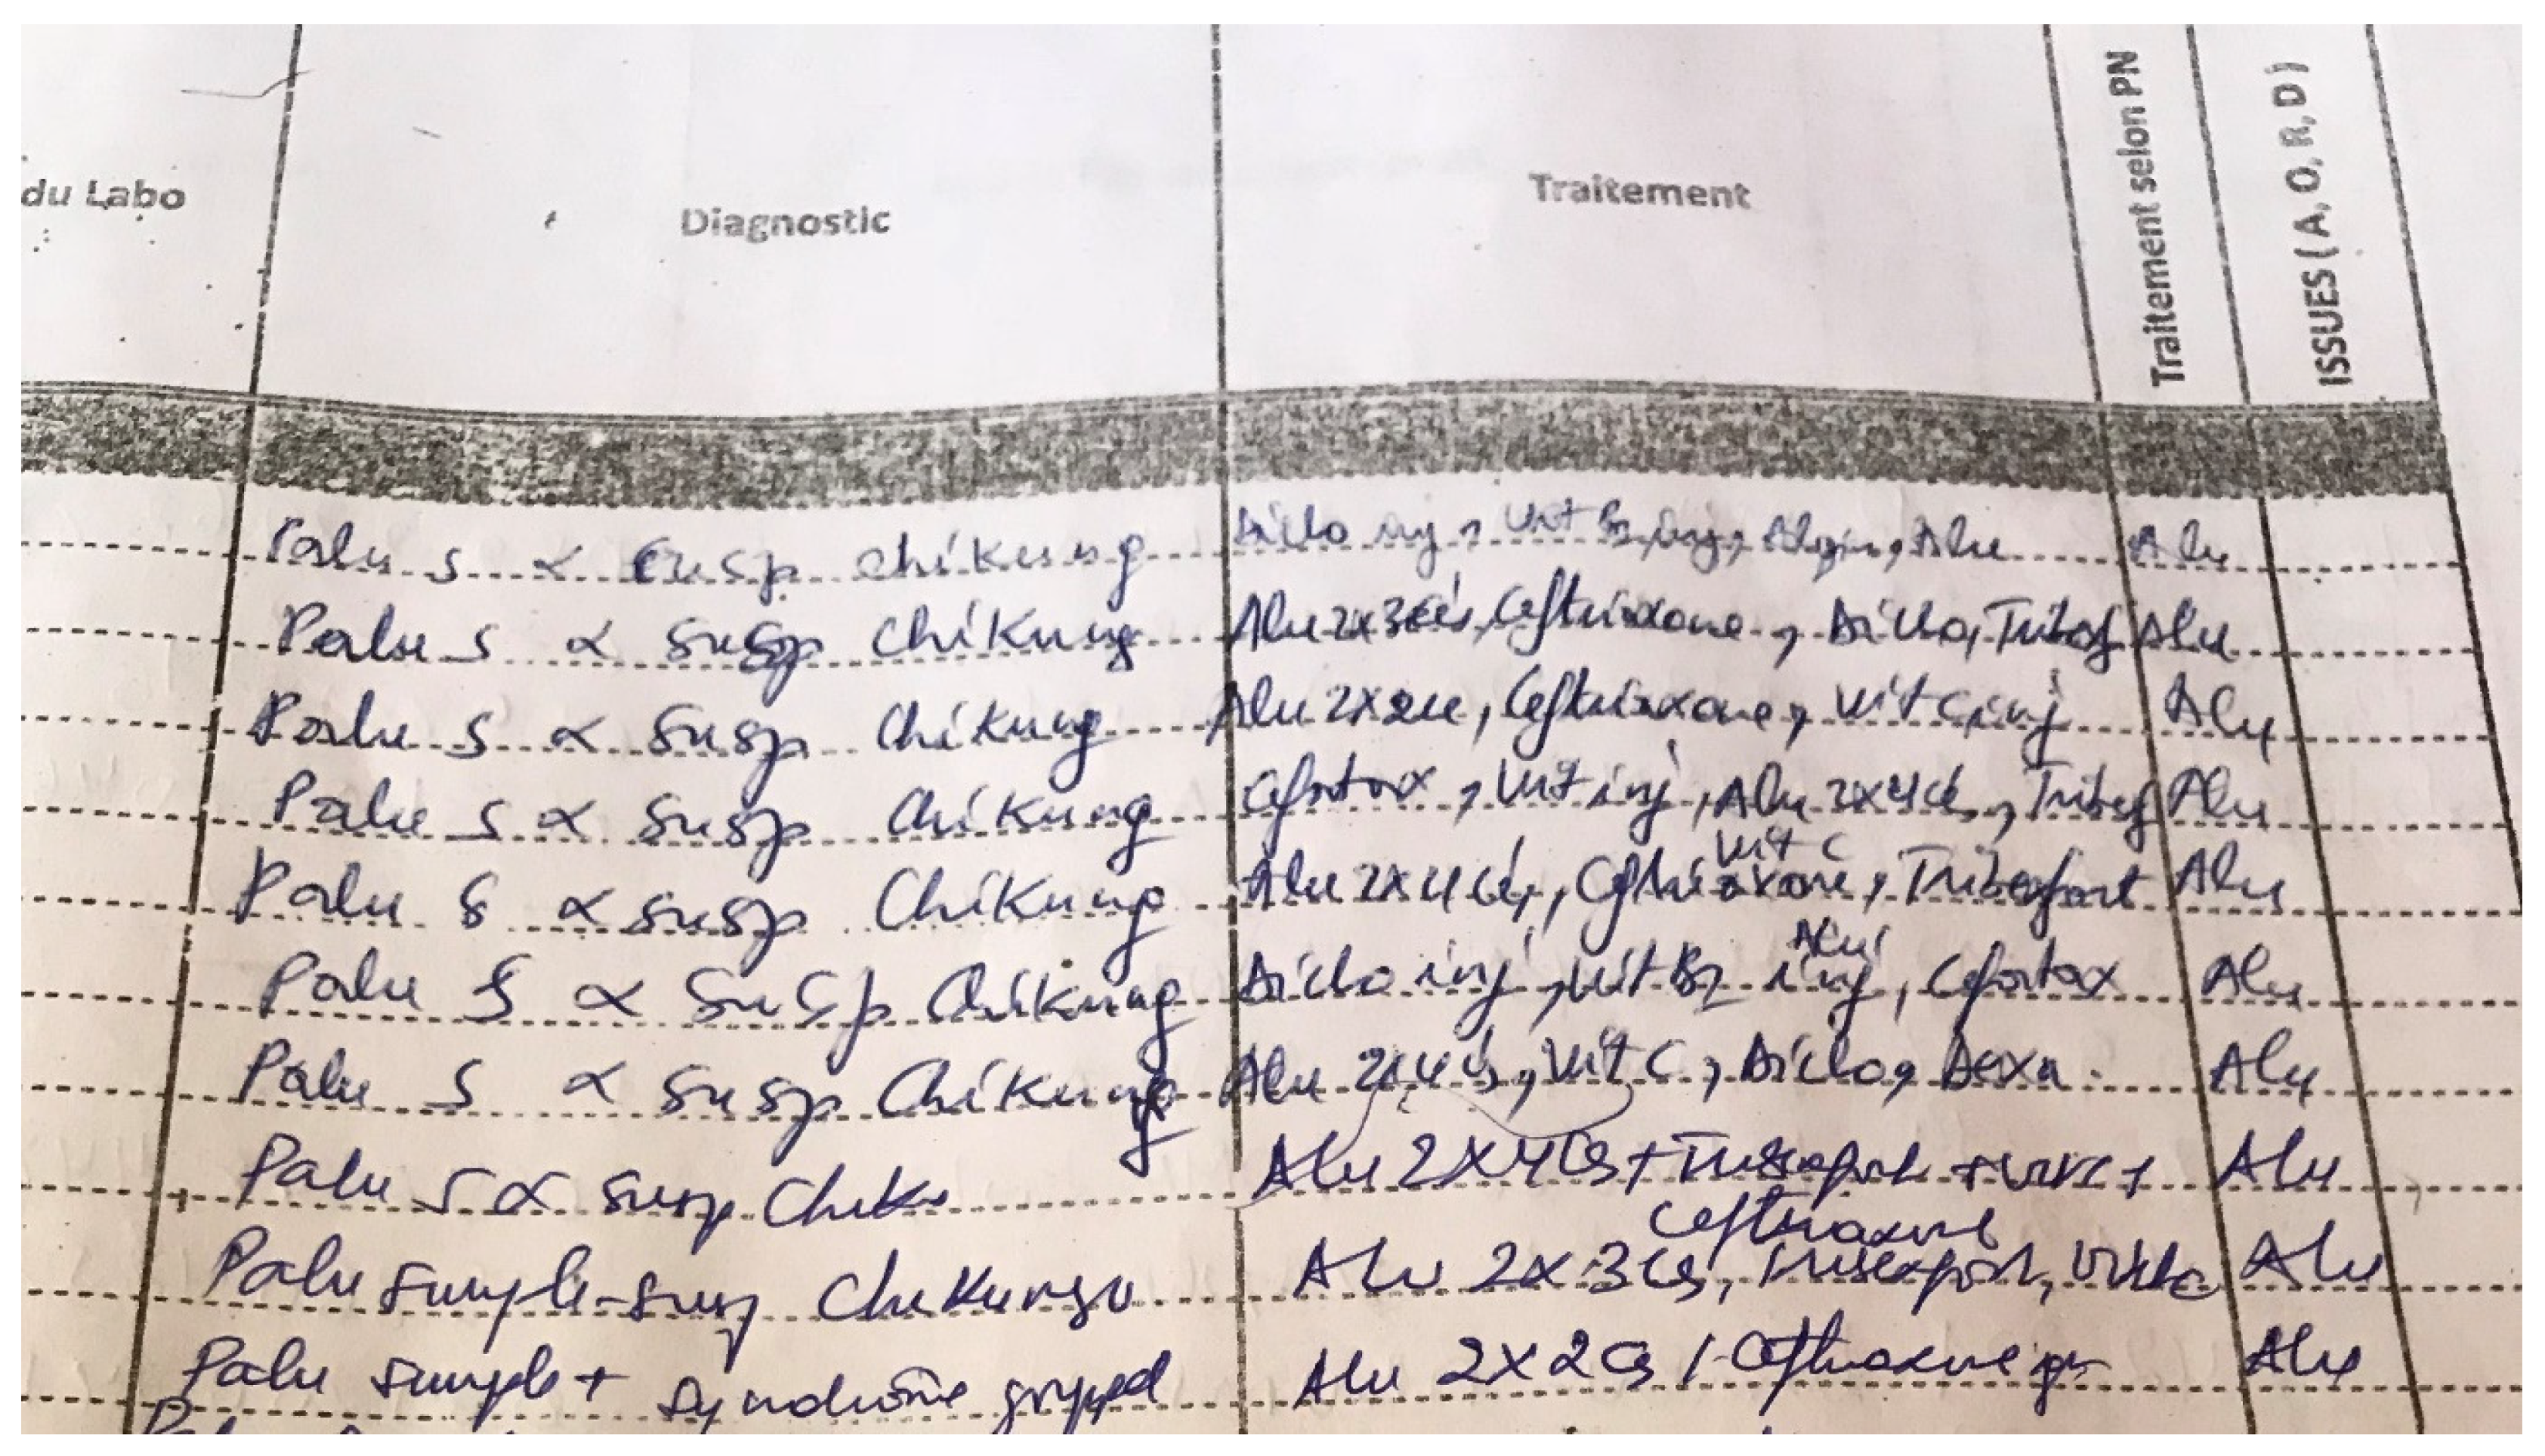 du Labo Diagnostic Traitement Traitement selon PN ISSUES (A, O, R, D)
Palu s α Susp chikung Diclo inj, Vit B2 inj, Alu Alu
Palu S α Susp Chikung Alu 2x3cés, Ceftriaxone, Diclo, Tribef Alu
Palu S α Susp Chikung Alu 2x2cé, Ceftriaxone, Vit C inj Alu
Palu S α Susp Chikung Cefotax, Vit inj, Alu 2x4cé, Tribef Alu
Vit C
Palu S α Susp Chikung Alu 2x4cé, Ceftriaxone, Alu
Alu
Palu S α Susp Chikung Diclo inj, Vit B2 inj, Cefotax Alu
Palu S α Susp Chikung Alu 2x4cés, Vit C, Diclo, Dexa. Alu
Palu S α Susp Chik. Alu 2x4cés + + Vit C + Alu
Ceftriaxone
Palu simple-susp Chikungu Alu 2x3cés, Alu
Palu simple + syndrome grippal Alu 2x2cés, Ceftriaxone Alu